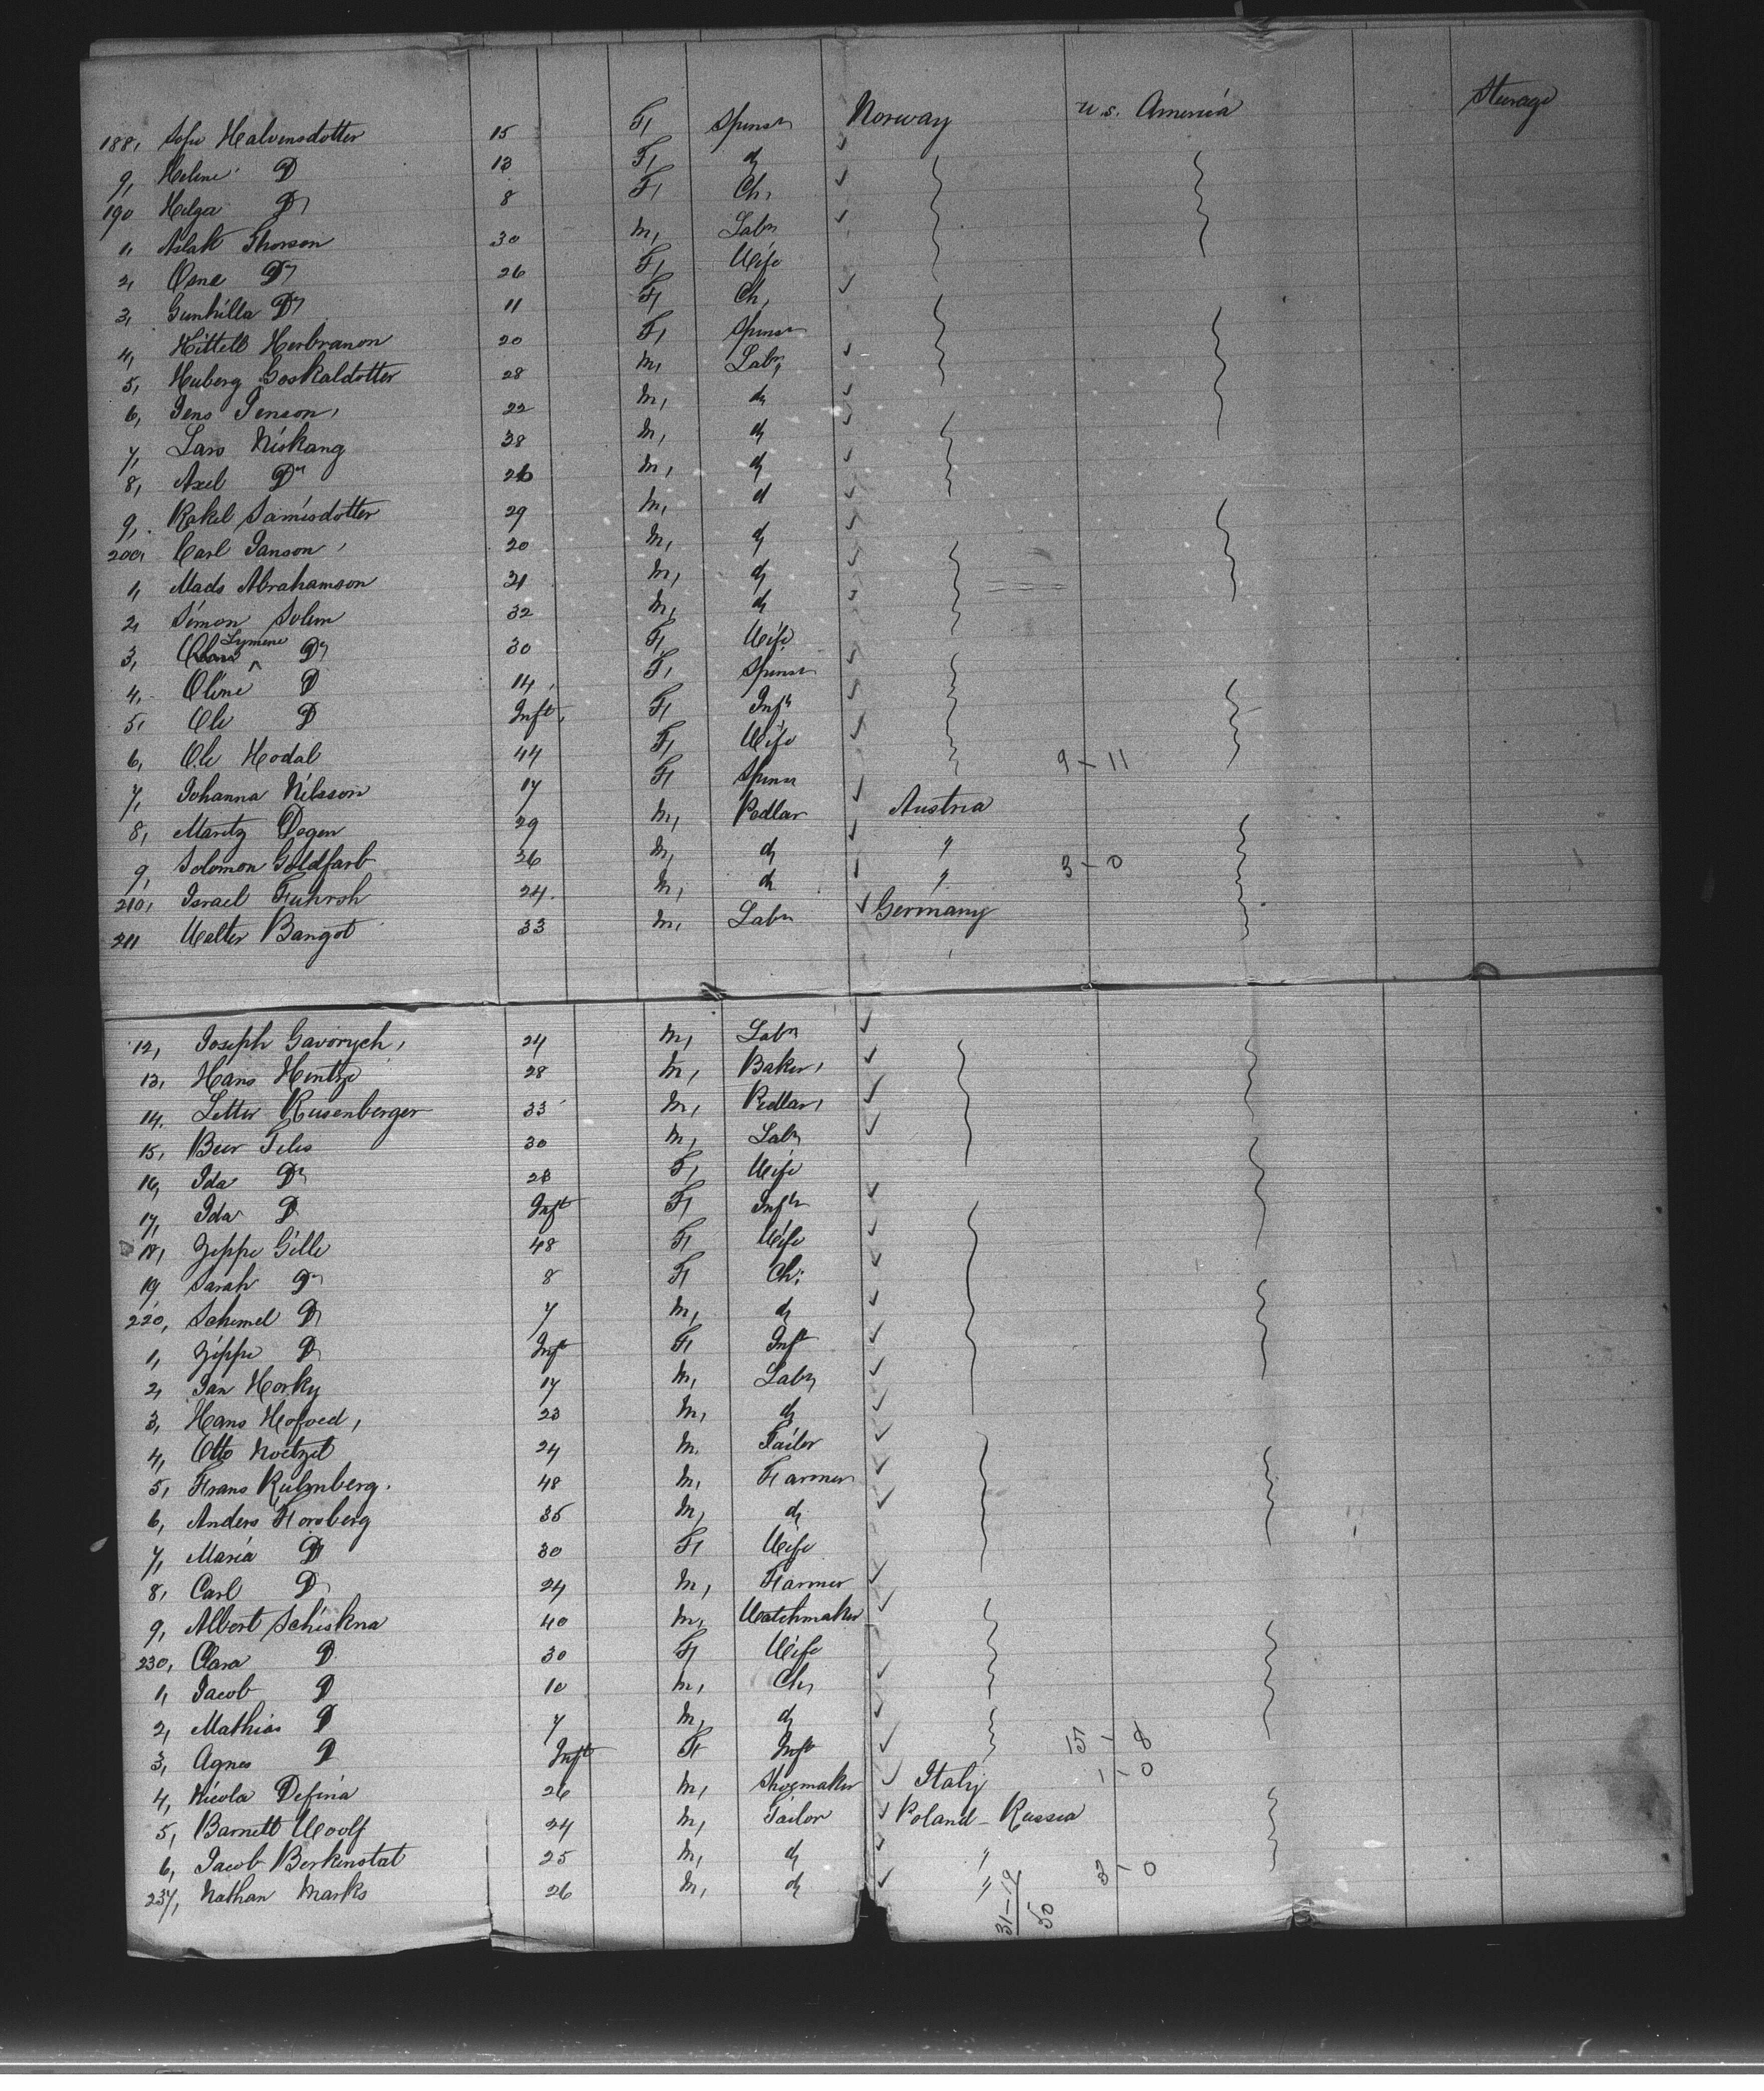 188, Sofie Halvensdotter 15 F, Spinst Norway U.S. America Sterage
9, Helene D 13 F, d
190 Helga D 8 F, Ch,
1, Aslak Thorson 30 M, Labr
2, Osne D 26 F, Wife
3, Gunhilla D 11 F, Ch,
4, Kittell Herbranon 20 F, Spinst
5, Huberg Goskaldotter 28 M, Labr
6, Jens Jenson, 22 M, d
7, Lars Niskang 38 M, d
8, Axel D 26 M, d
9, Rakel Samisdotter 29 M, d
200, Carl Janson 20 M, d
1, Mads Abrahamson 31 M, d
2, Simon Solem 32 M, d
3, Lymene D 30 F, Wife
4, Oline D 14, F, Spinst
5, Ole D Inft, F, Inft
6, Ole Hodal 44 F, Wife 9 - 11
7, Johanna Nilsson 17 F, Spinst
8, Moritz Degen 29 M, Pedlar Austria
9, Solomon Goldfarb 36 M, d " 3 - 0
210, Israel Fuhrsh 24. M, d "
211 Walter Bangot 33 M, Labr Germany
12, Joseph Gavorych, 24 M, Labr
13, Hans Hentze 28 M, Baker,
14. Letter Rusenberger 33 M, Pedlar,
15, Beer Feles 30 M, Labr
16, Ida D 28 F, Wife
17, Ida D Inft F, Inft
18, Zeppe Gille 48 F, Wife
19 Sarah D 8 F, Ch;
220, Schemel D 7 M, d
1, Zippe D Inft F, Inft
2, Jan Horky 17 M, Labr
3, Hans Hofoed, 23 M, d
4, Otto Noetzel 24 M. Tailor
5, Frans Kulmberg. 48 M, Farmer
6, Anders Forsberg 35 M, d
7, Maria D 30 F, Wife
8, Carl D 24 M, Farmer
9, Albert Schiskna 40 M, Watchmaker
230, Clara D 30 F, Wife
1, Jacob D 10 M, Ch,
2, Mathias D 7 M, d
3, Agnes D Inft F, Inft 15 - 8
4, Nicola Defina 26 M, Shoemaker Italy 1 - 0
5, Barnett Woolf 24 M, Tailor Poland - Russia
6, Jacob Berkenstat 25 M, d "
237, Nathan Marks 26 M, d " 3 - 0
31-19
50